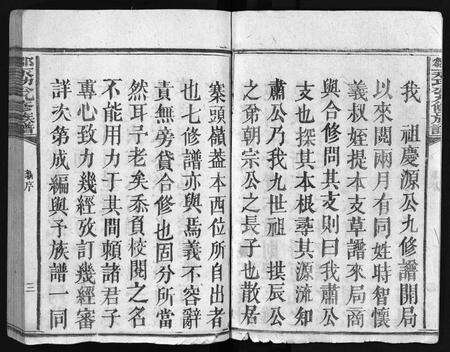 我　祖慶源公九修譜開局
以來閱兩月有同姓時智懷
義叔姪提本支草譜來局商
與合修問其支則曰我肅公
支也探其本根尋其源流知
肅公乃我九世祖　拱辰公
之弟朝宗公之長子也散居
寨頭嶺盎本西位所自出者
也七修譜亦與焉義不容辭
責無旁貸合修也固分所當
然耳予老矣忝負校閱之名
不能用力于其間賴諸君子
專心致力幾經攷訂幾經審
詳次第成編與予族譜一同
序
三